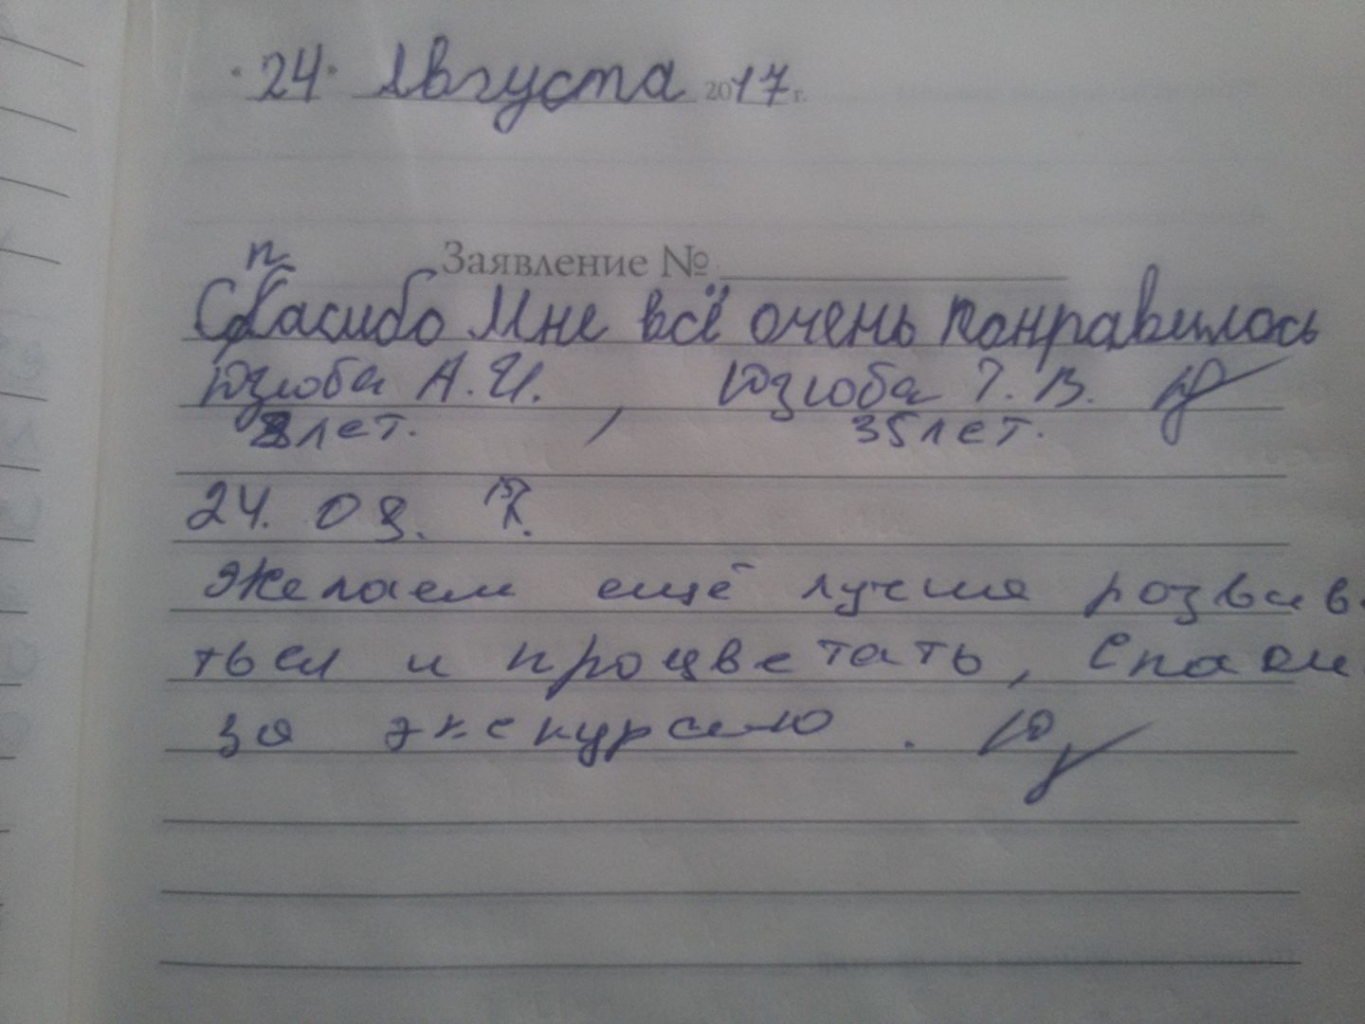 "24" Августа 2017 г.
Заявление №
Спасибо Мне всё очень понравилось
Юзюба А.И. , Юзюба Т.В.
8 лет. 35 лет.
24. 08.
Желаем ещё лучше розвив
ться и процветать,
за экскурсию.